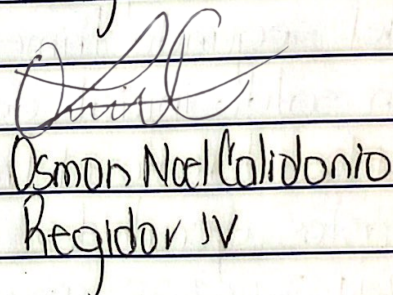 Osmon Noel Calidonio
Regidor IV